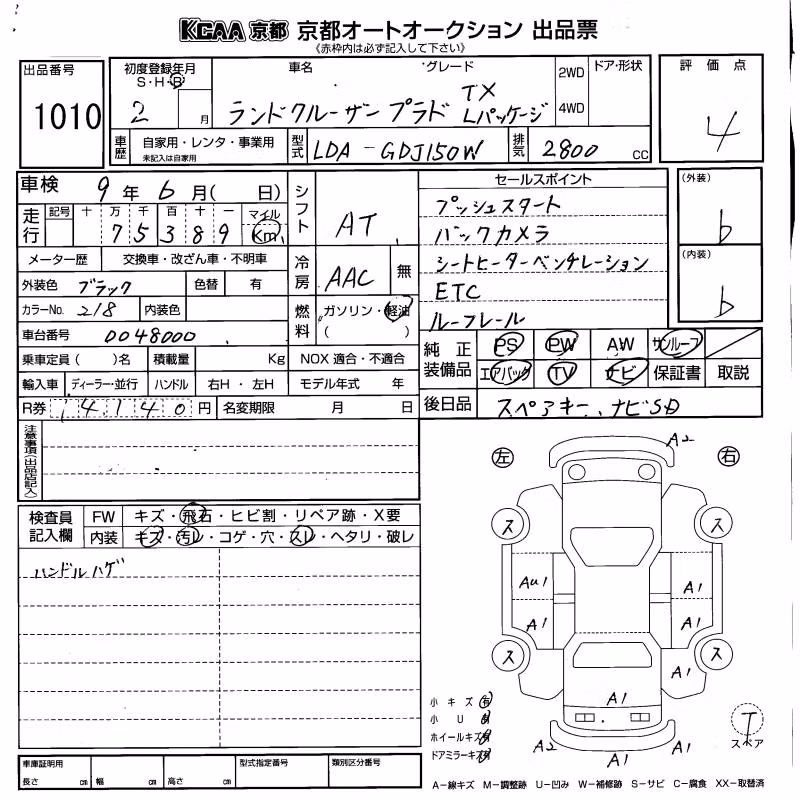 KCAA 京都 京都オートオークション 出品票
《赤枠内は必ず記入して下さい》
出品番号
1010
初度登録年月
S・H・R
2 月
車名
グレード
ランドクルーザー プラド TX Lパッケージ
2WD
4WD
ドア・形状
評価点
4
車歴
自家用・レンタ・事業用
未記入は自家用
型式
LDA-GDJ150W
排気
2800 CC
車検 9年 6月( 日)
走行
記号 十 万 千 百 十 一 マイル
75389 Km
メーター歴 交換車・改ざん車・不明車
外装色 ブラック 色替 有
カラーNo. 218 内装色
車台番号 0048000
乗車定員( )名 積載量 Kg NOX 適合・不適合
輸入車 ディーラー・並行 ハンドル 右H・左H モデル年式 年
R券 14140円 名変期限 月 日
シフト AT
冷房 AAC 無
燃料 ガソリン・軽油
( )
セールスポイント
プッシュスタート
バックカメラ
シートヒーターベンチレーション
ETC
ルーフレール
(外装)
b
(内装)
b
純正装備品
PS PW AW サンルーフ
エアバッグ TV ナビ 保証書 取説
後日品 スペアキー、ナビSD
注意事項(出品店記入)
検査員記入欄
FW キズ・飛石・ヒビ割・リペア跡・X要
内装 キズ・汚レ・コゲ・穴・スレ・ヘタリ・破レ
ハンドルハゲ
左
右
A2
ス
ス
AU1
A1
A1
A1
ス
ス
A1
A1
A2
A1
A1
小キズ 有
小U
ホイールキズ
ドアミラーキズ
T
スペア
車庫証明用
長さ cm 幅 cm 高さ cm
型式指定番号
類別区分番号
A-線キズ M-調整跡 U-凹み W-補修跡 S-サビ C-腐食 XX-取替済